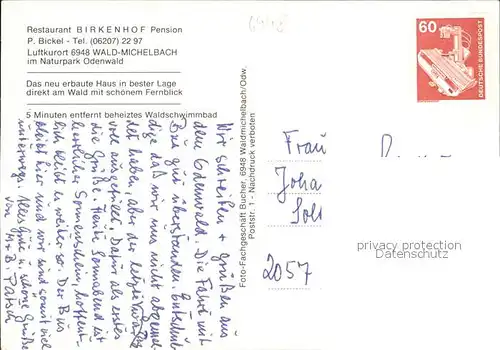 Restaurant BIRKENHOF Pension
P. Bickel - Tel. (06207) 22 97
Luftkurort 6948 WALD-MICHELBACH
im Naturpark Odenwald
Das neu erbaute Haus in bester Lage
direkt am Wald mit schönem Fernblick
5 Minuten entfernt beheiztes Waldschwimmbad
Wir schreiben + grüßen aus
dem Odenwald. Die Fahrt mit
Bus gut überstanden. Entschul-
dige daß wir uns nicht abgemel-
det haben, aber der letzte
voll ausgefüllt. Dafür als erstes
die Grüße. Heute Sonnabend ist
herrlicher Sonnenschein, hoffent-
lich bleibt es weiter so. Der Bus
bleibt hier und wir sind somit viel
unterwegs. Alles Gute u. schöne Grüße
von
Foto-Fachgeschäft Bucher, 6948 Waldmichelbach/Odw.
Poststr. 1 - Nachdruck verboten
60
DEUTSCHE BUNDESPOST
Frau
Joha
Solt
2057
privacy protection
AnsichtskartenWelt